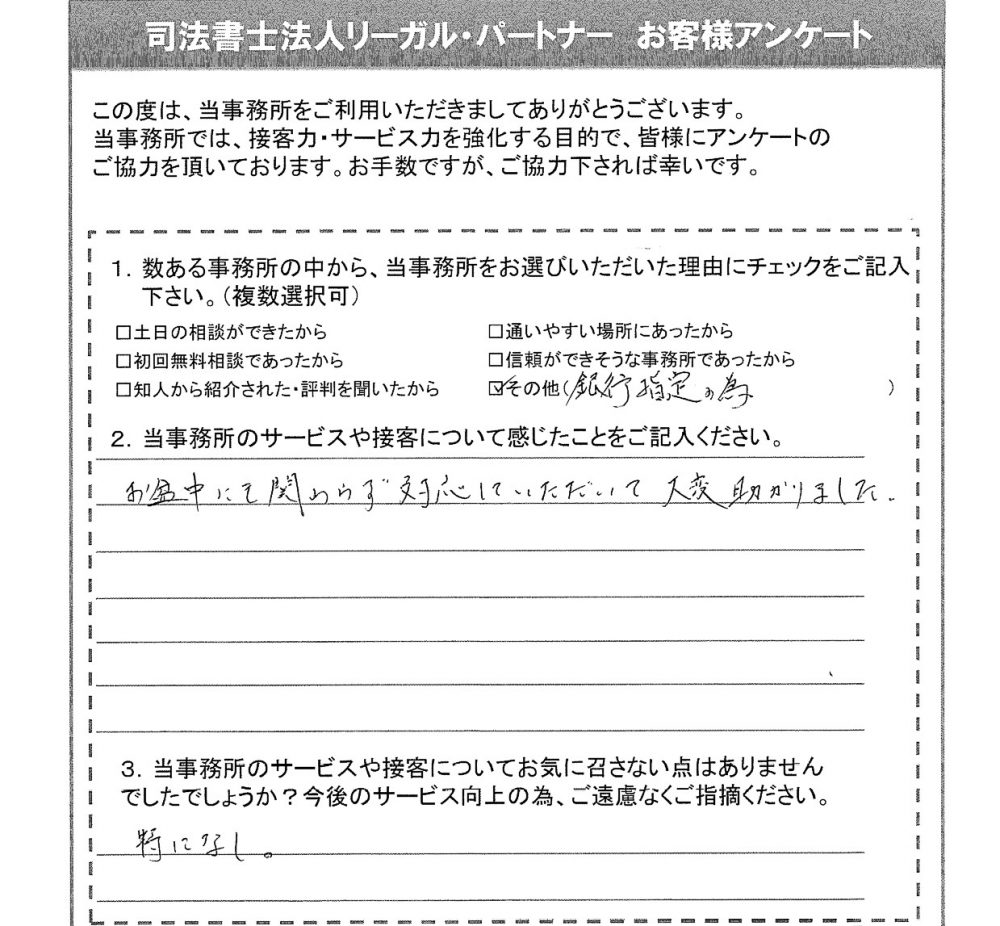 司法書士法人リーガル・パートナー お客様アンケート
この度は、当事務所をご利用いただきましてありがとうございます。
当事務所では、接客力・サービス力を強化する目的で、皆様にアンケートの
ご協力を頂いております。お手数ですが、ご協力下されば幸いです。
1. 数ある事務所の中から、当事務所をお選びいただいた理由にチェックをご記入
下さい。(複数選択可)
□土日の相談ができたから □通いやすい場所にあったから
□初回無料相談であったから □信頼ができそうな事務所であったから
□知人から紹介された・評判を聞いたから ☑その他(銀行指定の為)
2. 当事務所のサービスや接客について感じたことをご記入ください。
お盆中にも関わらず対応していただいて大変助かりました.
3. 当事務所のサービスや接客についてお気に召さない点はありません
でしたでしょうか?今後のサービス向上の為、ご遠慮なくご指摘ください。
特になし。